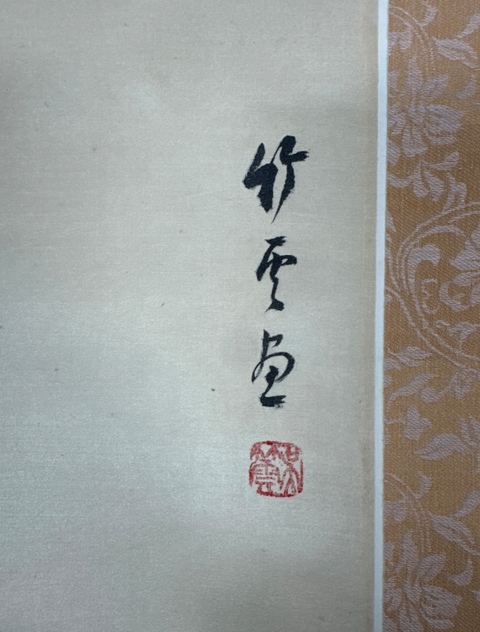 竹雲画